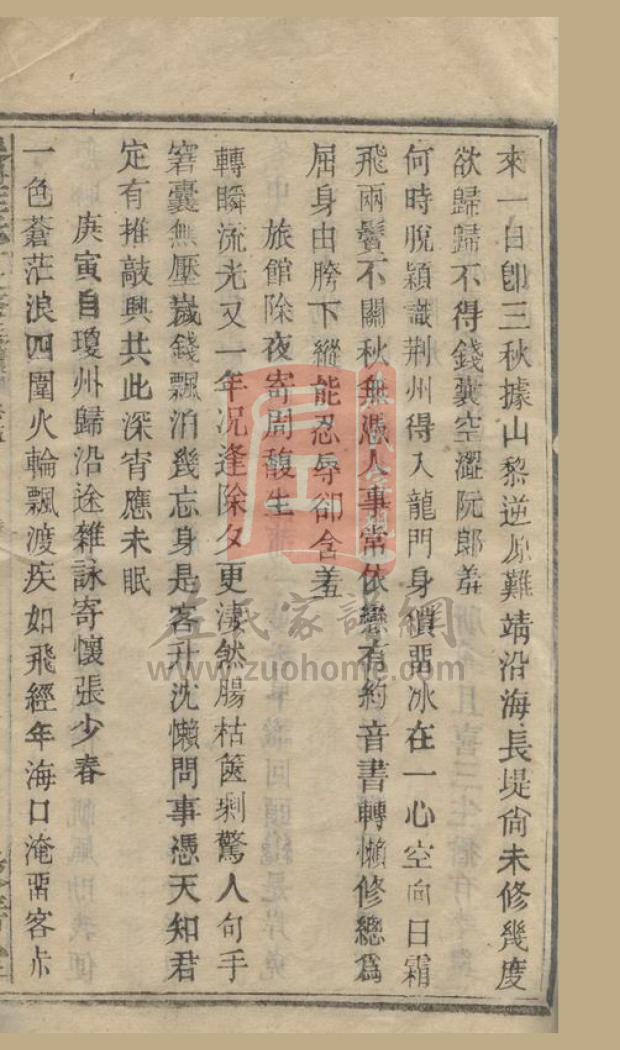 來一日卽三秋據山黎逆原難靖沿海長堤尙未修幾度
欲歸歸不得錢囊空澀阮郞羞
何時脫穎識荆州得入龍門身價畱冰在一心空向日霜
飛兩鬢不關秋無憑人事常依戀有約音書轉懶修總爲
屈身由胯下縱能忍辱卻含羞
旅館除夜寄周馥生
轉瞬流光又一年况逢除夕更淒然腸枯篋剩驚人句手
窘囊無壓歲錢飄泊幾忘身是客升沈懶問事憑天知君
定有推敲興共此深宵應未眠
庚寅自瓊州歸沿途雜詠寄懷張少春
一色蒼茫浪四圍火輪飄渡疾如飛經年海口淹畱客
左氏家譜網
www.zuohome.com